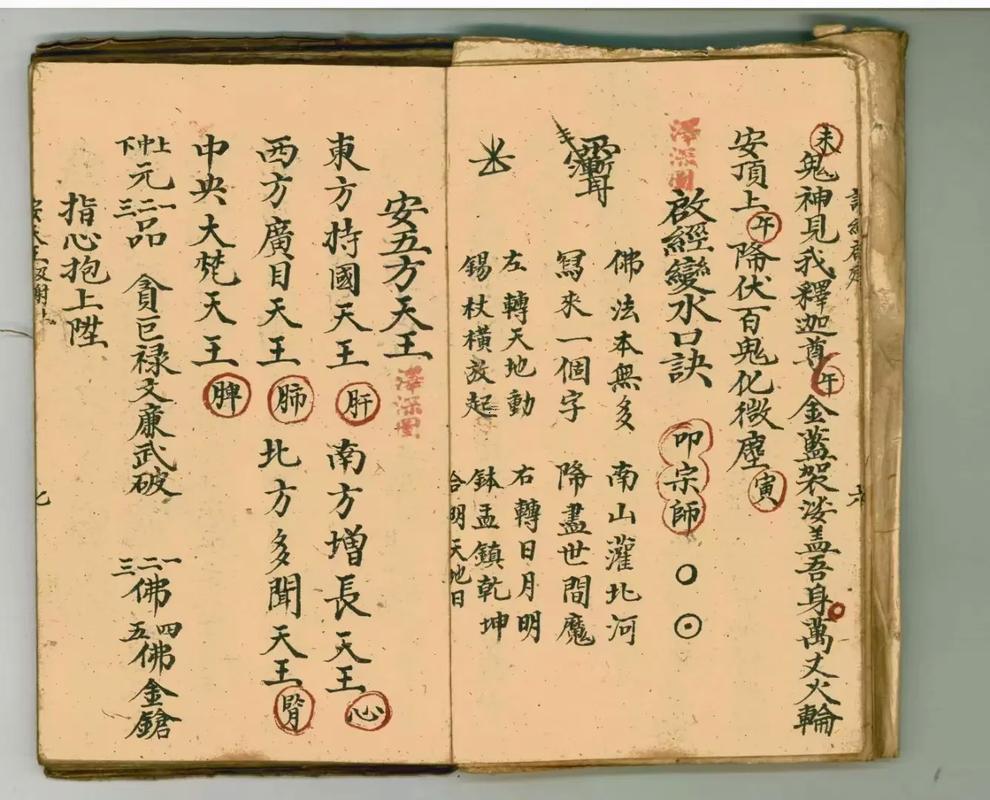 未鬼神見我釋迦尊午金藍袈裟盖吾身萬丈火輪
安頂上午降伏百鬼化微塵寅
澤深圖
啟經變水口訣 叩宗師
佛法本無多 南山灌北河
冩來一個字 降盡世間魔
左轉天地動 右轉日月明
錫杖橫放起 鉢盂鎮乾坤
合明天地日
安五方天王
澤深圖
東方持國天王肝 南方增長天王心
西方廣目天王肺 北方多聞天王腎
中央大梵天王脾
上中下元一二三品 貪巨禄文廉武破 一二三佛四五佛金鎗
指心抱上陞